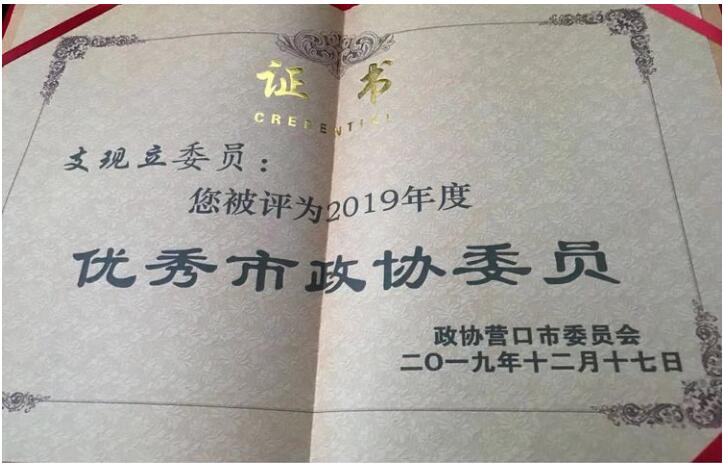 证书
CREDENTIAL
支现立委员：
您被评为2019年度
优秀市政协委员
政协营口市委员会
二〇一九年十二月十七日